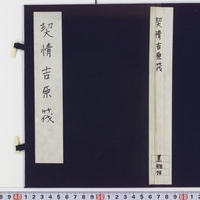 契情吉原筏
契情吉原筏